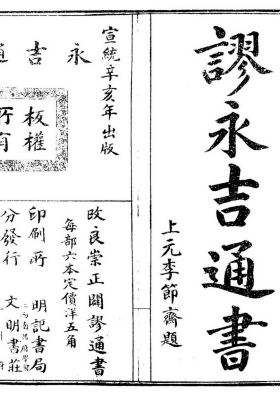 謬永吉通書
上元李節齋題
宣統辛亥年出版
永吉通
板權
所有
改良崇正闢謬通書
每部六本定價洋五角
印刷所 明記書局
分發行 文明書莊